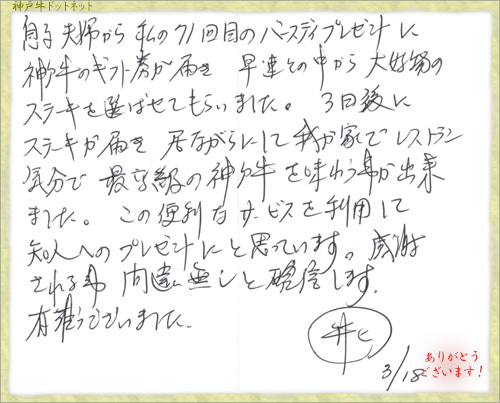 神戸牛ドットネット
息子夫婦から私の71回目のバースディプレゼントに
神戸牛のギフト券が届き 早速その中から大好物の
ステーキを選ばせてもらいました。 3日後に
ステーキが届き 居ながらにして我が家でレストラン
気分で 最高級の神戸牛を味わう事が出来
ました。 この便利なサービスを利用して
知人へのプレゼントにと思っています。感謝
される事 間違い無しと確信します。
有難うございました。
3/18
ありがとう
ございます！